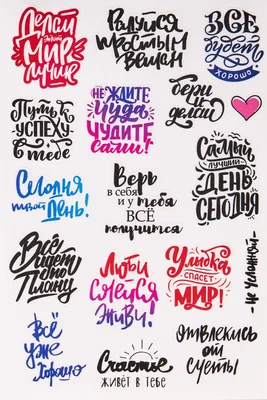 Делаем
этот
мир
лучше
Радуйся
простым
вещам
ВСЁ
будет
хорошо
Путь к
успеху
в тебе
НЕ ЖДИТЕ
чуда
ЧУДИТЕ
сами!
бери
и
делай
Самый
лучший
ДЕНЬ
СЕГОДНЯ
Сегодня
твой
День!
Верь
в себя
и у тебя
ВСЁ
получится
Всё
идет
по
Плану
Люби
Смейся
Живи!
Улыбкой
СПАСЕТ
МИР!
- не усложняй -
Всё
уже
Хорошо
Счастье
ЖИВЁТ В ТЕБЕ
отвлекись
от
суеты